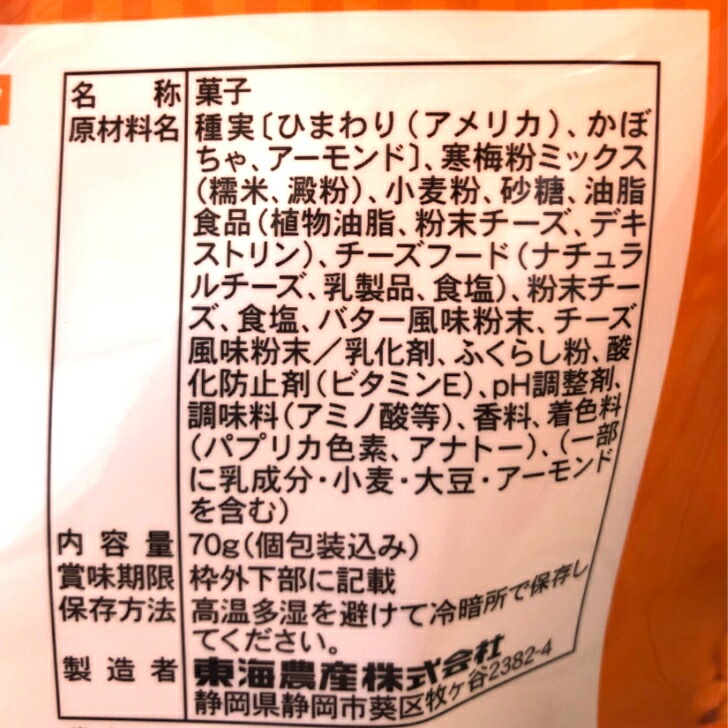 名称 菓子
原材料名 種実〔ひまわり(アメリカ)、かぼ
ちゃ、アーモンド〕、寒梅粉ミックス
(糯米、澱粉)、小麦粉、砂糖、油脂
食品(植物油脂、粉末チーズ、デキ
ストリン)、チーズフード(ナチュラ
ルチーズ、乳製品、食塩)、粉末チー
ズ、食塩、バター風味粉末、チーズ
風味粉末/乳化剤、ふくらし粉、酸
化防止剤(ビタミンE)、pH調整剤、
調味料(アミノ酸等)、香料、着色料
(パプリカ色素、アナトー)、(一部
に乳成分・小麦・大豆・アーモンド
を含む)
内容量 70g(個包装込み)
賞味期限 枠外下部に記載
保存方法 高温多湿を避けて冷暗所で保存し
てください。
製造者 東海農産株式会社
静岡県静岡市葵区牧ヶ谷2382-4